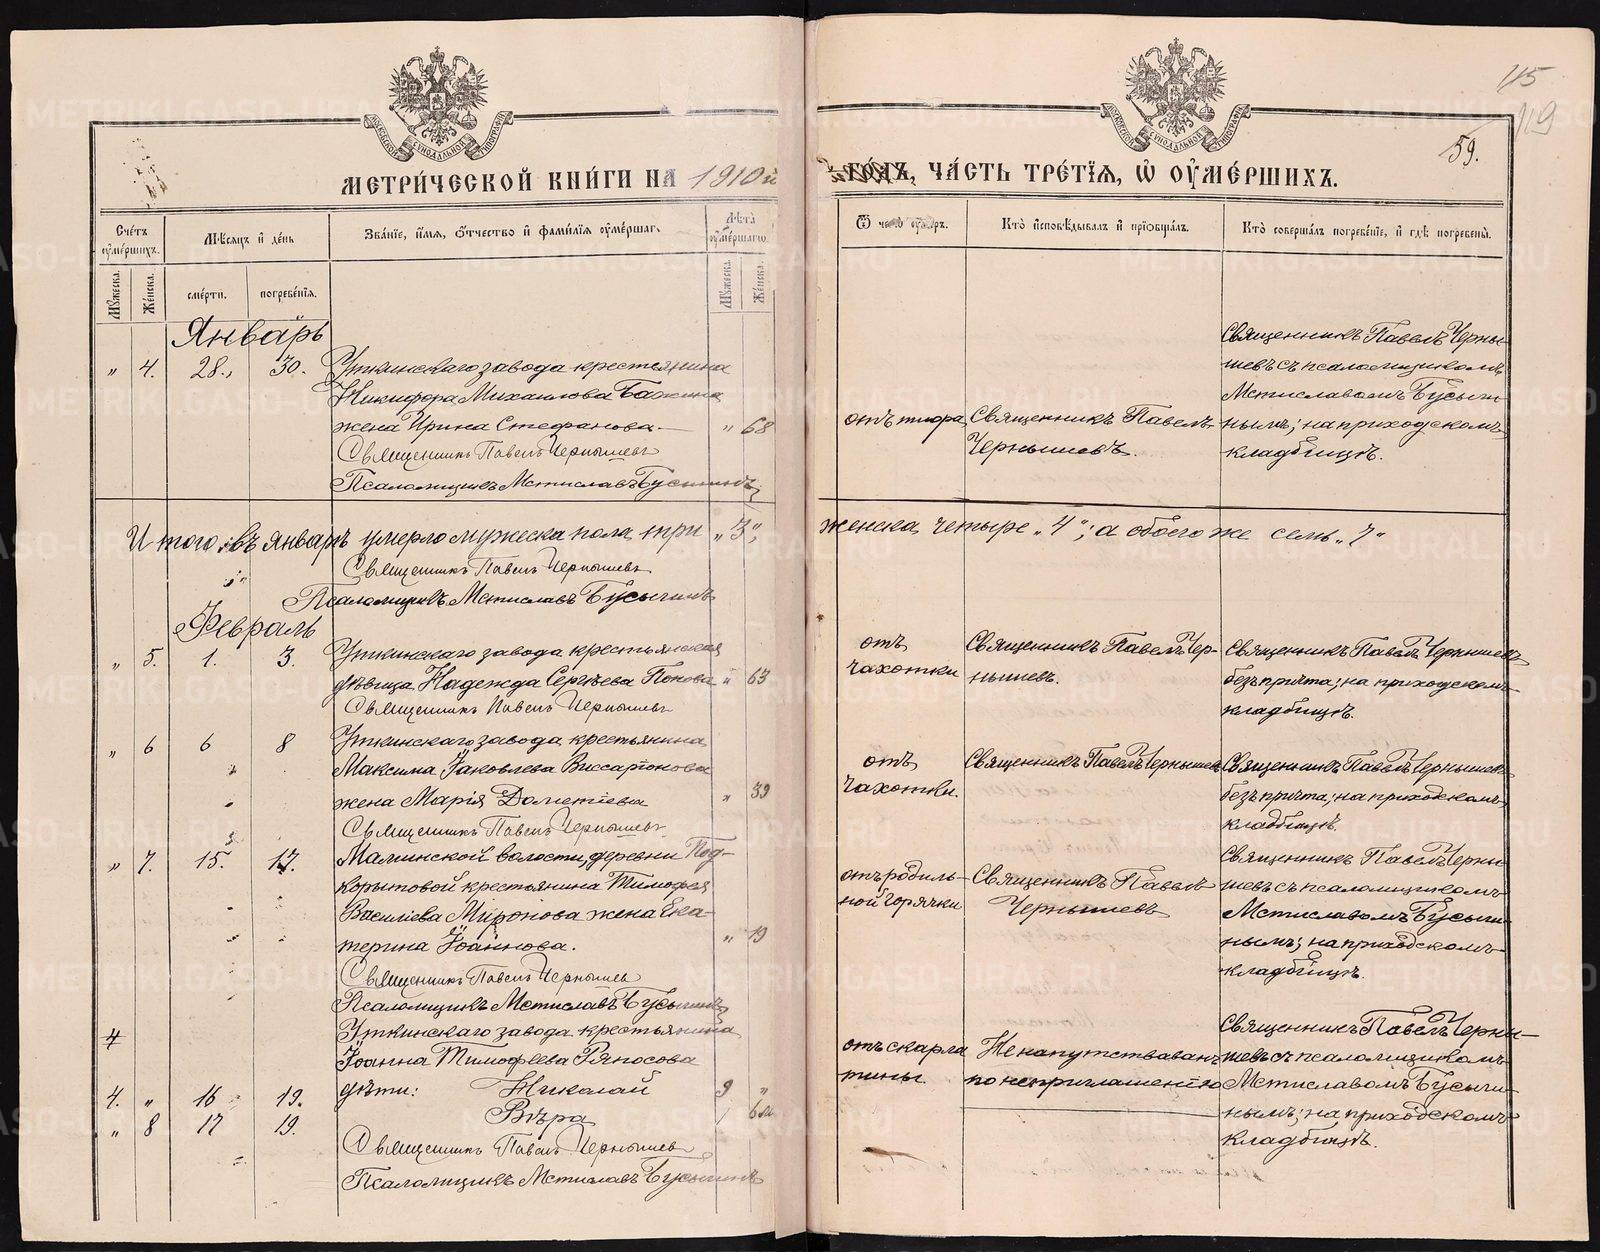 45
119
59.
МЕТРИ́ЧЕСКОЙ КНИ́ГИ НА 1910й
ГО́ДЪ, ЧА́СТЬ ТРЕ́ТІЯ, Ѿ ОУМЕ́РШИХЪ.
Сче́тъ оуме́ршихъ.
Мѣ́сяцъ и де́нь
Зва́ніе, и́мя, о́тчество и фами́лія оуме́ршаго.
Лѣ́та оуме́ршаго.
Му́жеска.
Же́нска.
сме́рти.
погребе́нія.
Му́жеска.
Же́нска.
Ѿ чего̀ оу́меръ.
Кто̀ исповѣ́дывалъ и пріобща́лъ.
Кто̀ соверша́лъ погребе́ніе, и гдѣ̀ погребены̀.
Январь
„ 4. 28., 30. Уткинскаго завода крестьянина
Никифора Михаилова Бажина
жена Ирина Стефанова. „ 68
Священникъ Павелъ Чернышевъ
Псаломщикъ Мстиславъ Бусыгинъ
отъ тифа
Священникъ Павелъ
Чернышевъ.
Священникъ Павелъ Черны-
шевъ съ псаломщикомъ
Мстиславомъ Бусыги-
нымъ; на приходскомъ
кладбищѣ.
Итого въ январѣ умерло мужеска пола три „3„
женска четыре „4„; а обоего же семь „7„
Священникъ Павелъ Чернышевъ
Псаломщикъ Мстиславъ Бусыгинъ
Февраль
„ 5. 1. 3. Уткинскаго завода крестьянская
дѣвица Надежда Сергѣева Попова „ 63
Священникъ Павелъ Чернышевъ
отъ
чахотки
Священникъ Павелъ Чер-
нышевъ.
Священникъ Павелъ Чернышевъ
безъ причта; на приходскомъ
кладбищѣ.
„ 6 6 8 Уткинскаго завода крестьянина
Максима Іаковлева Виссаріонова
жена Марія Дометіева „ 39
Священникъ Павелъ Чернышевъ
отъ
чахотки.
Священникъ Павелъ Чернышевъ
Священникъ Павелъ Чернышевъ
безъ причта; на приходскомъ
кладбищѣ.
„ 7. 15. 17. Малинской волости, деревни Под-
корытовой крестьянина Тимофея
Василіева Миронова жена Ека-
терина Іоаннова. „ 19
Священникъ Павелъ Чернышевъ
Псаломщикъ Мстиславъ Бусыгинъ
отъ родиль-
ной горячки
Священникъ Павелъ
Чернышевъ
Священникъ Павелъ Черны-
шевъ съ псаломщикомъ
Мстиславомъ Бусыги-
нымъ; на приходскомъ
кладбищѣ.
4 Уткинскаго завода крестьянина
Іоанна Тимофеева Ряпосова
дѣти:
4. „ 16 19. Николай 9 „
„ 8 17 19. Вѣра / 6 м
Священникъ Павелъ Чернышевъ
Псаломщикъ Мстиславъ Бусыгинъ
отъ скарла
тины.
Не напутствованъ
по неприглашенію
Священникъ Павелъ Черны-
шевъ съ псаломщикомъ
Мстиславомъ Бусыги-
нымъ; на приходскомъ
кладбищѣ.
METRIKI.GASO-URAL.RU